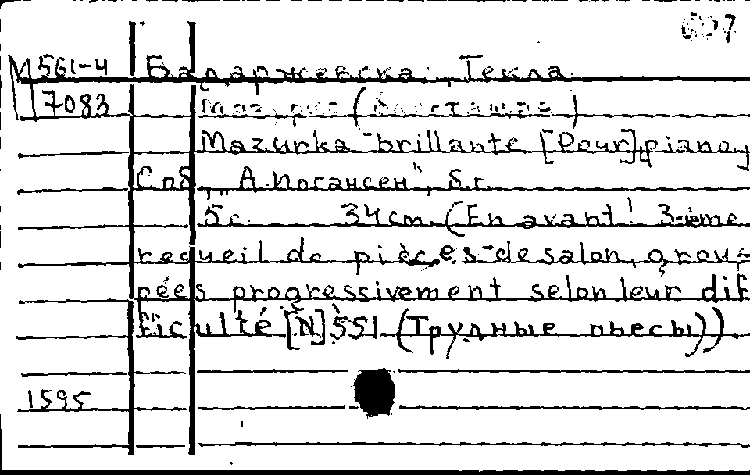 М 561-4 Бадаржевска, Текла
7083 Мазурка (блестящая)
Mazurka brillante [Pour] piano
Спб., „А. Иогансен“, б.г.
5 с. 34 cm. (En avant! 3-ème
recueil de pièces de salon, grou-
pées progressivement selon leur dif
ficulté [N] 551 (Трудные пьесы))
1595